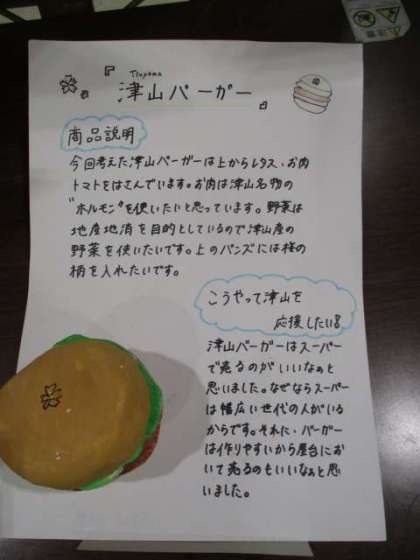 Tsuyama
『津山バーガー』
商品説明
今回考えた津山バーガーは上からレタス、お肉
トマトをはさんでいます。お肉は津山名物の
"ホルモン"を使いたいと思っています。野菜は
地産地消を目的としているので津山産の
野菜を使いたいです。上のバンズには桜の
柄を入れたいです。
こうやって津山を
応援したい!
津山バーガーはスーパー
で売るのがいいなぁと
思いました。なぜならスーパー
は幅広い世代の人がいる
からです。それに、バーガー
は作りやすいから屋台にお
いて売るのもいいなぁと思
いました。